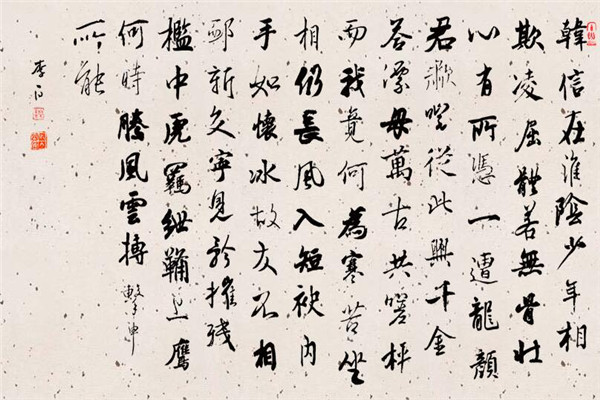 韓信在淮陰少年相
欺凌屈體若無骨壯
心有所憑一遭龍顏
君嘯咤從此興千金
答漂母萬古共嗟稱
而我竟何為寒苦坐
相仍長風入短袂內
手如懷冰故友不相
卹新交寧見矜摧殘
檻中虎羈紲鞲上鷹
何時騰風雲搏擊申
所能
李白